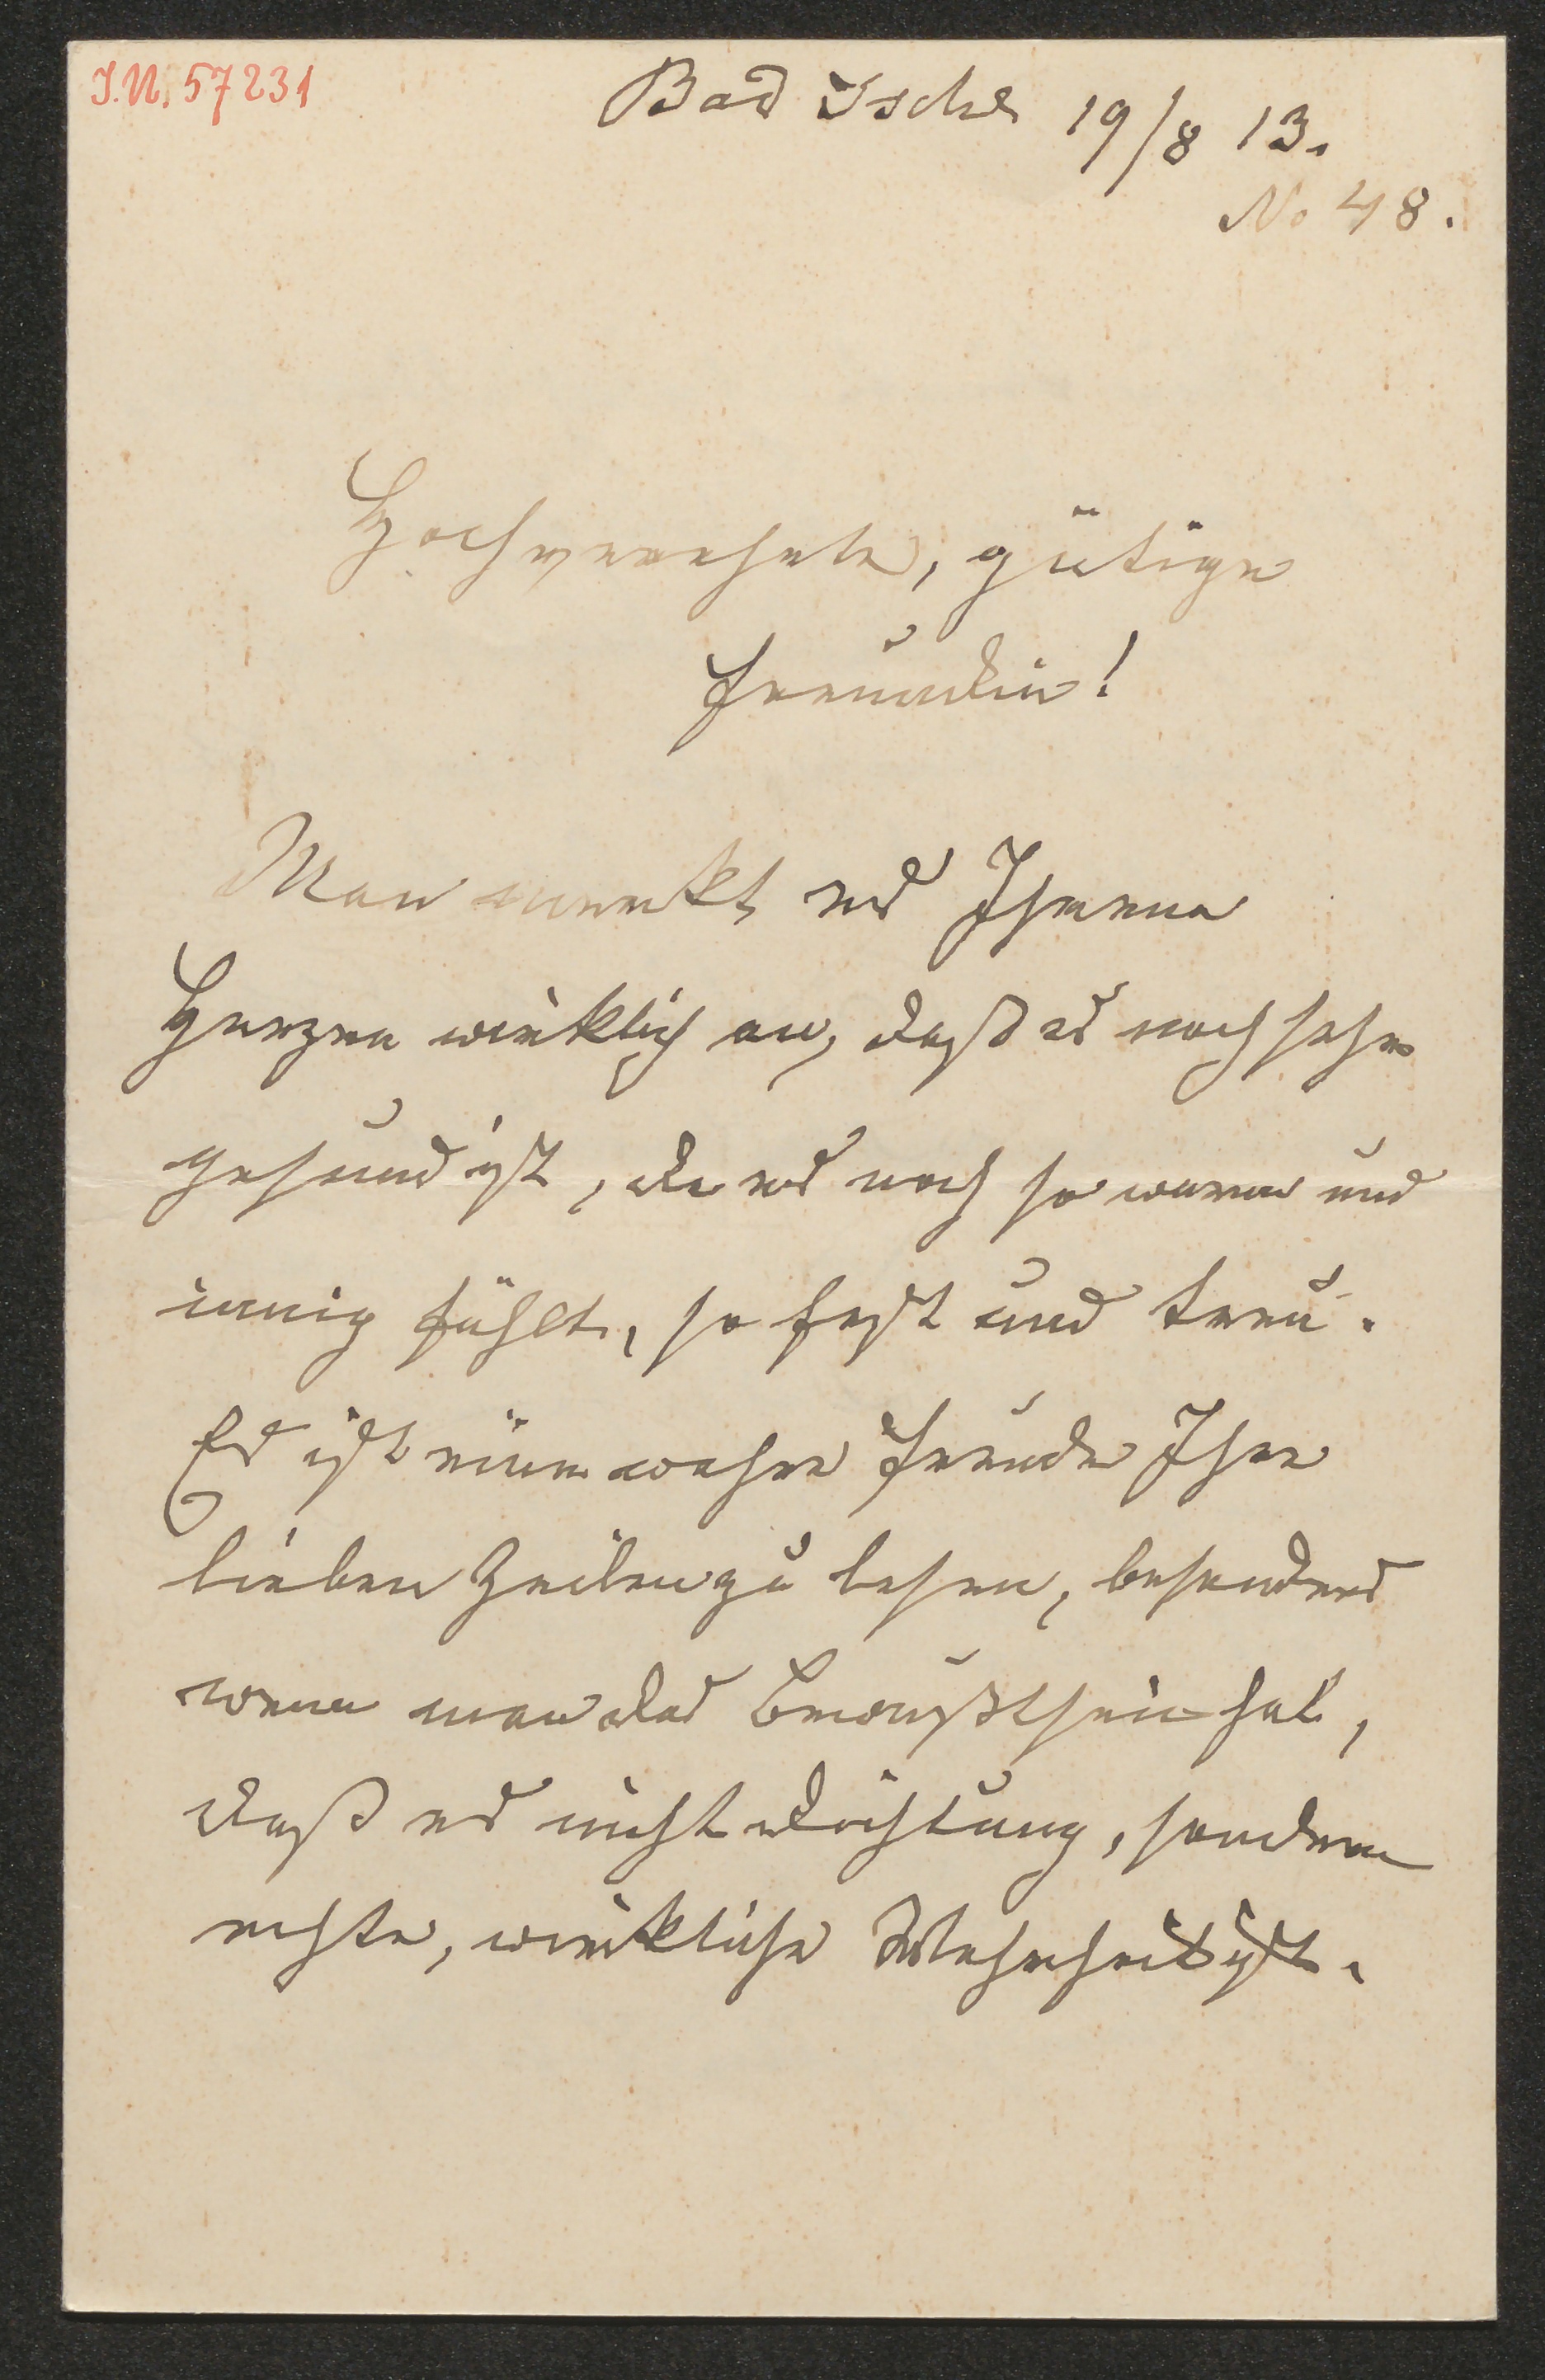 J.N. 57231
Bad Ischl 19/8 13.
No 48.
Hochverehrte, gütige
Freundin!
Man merkt es Ihrem
Herzen wirklich an, daß es noch sehr
gesund ist, da es noch so warm und
innig fühlt, so fest und treu.
Es ist eine wahre Freude Ihre
lieben Zeilen zu lesen, besonders
wenn man das Bewußtsein hat,
daß es nicht Dichtung, sondern
echte, wirkliche Wahrheit ist.